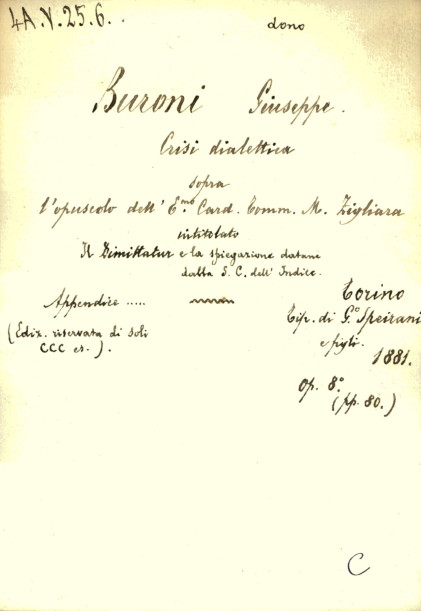 4A.V.25.6.
dono
Buroni Giuseppe.
Crisi dialettica
sopra
l'opuscolo dell' E.mo Card. Tomm. M. Zigliara
intitolato
Il Dimittatur e la spiegazione datane
dalla S. C. dell' Indice.
Appendice .....
(Ediz. riservata di soli
CCC es.).
Torino
Tip. di G.o Speirani
e figli.
1881.
op. 8.o
(pp. 80.)
C